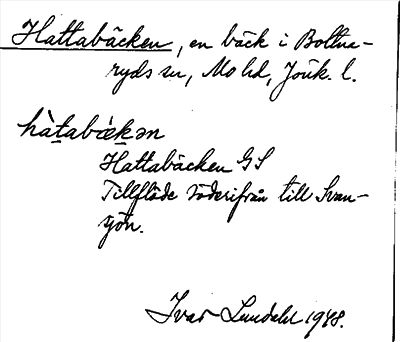 Hattabäcken, en bäck i Bottna-
ryds sn, Mo hd, Jönk. l.
hàtabäkən
Hattabäcken GS
Tillflöde söderifrån till Svan-
sjön.
Ivar Lundahl 1948.